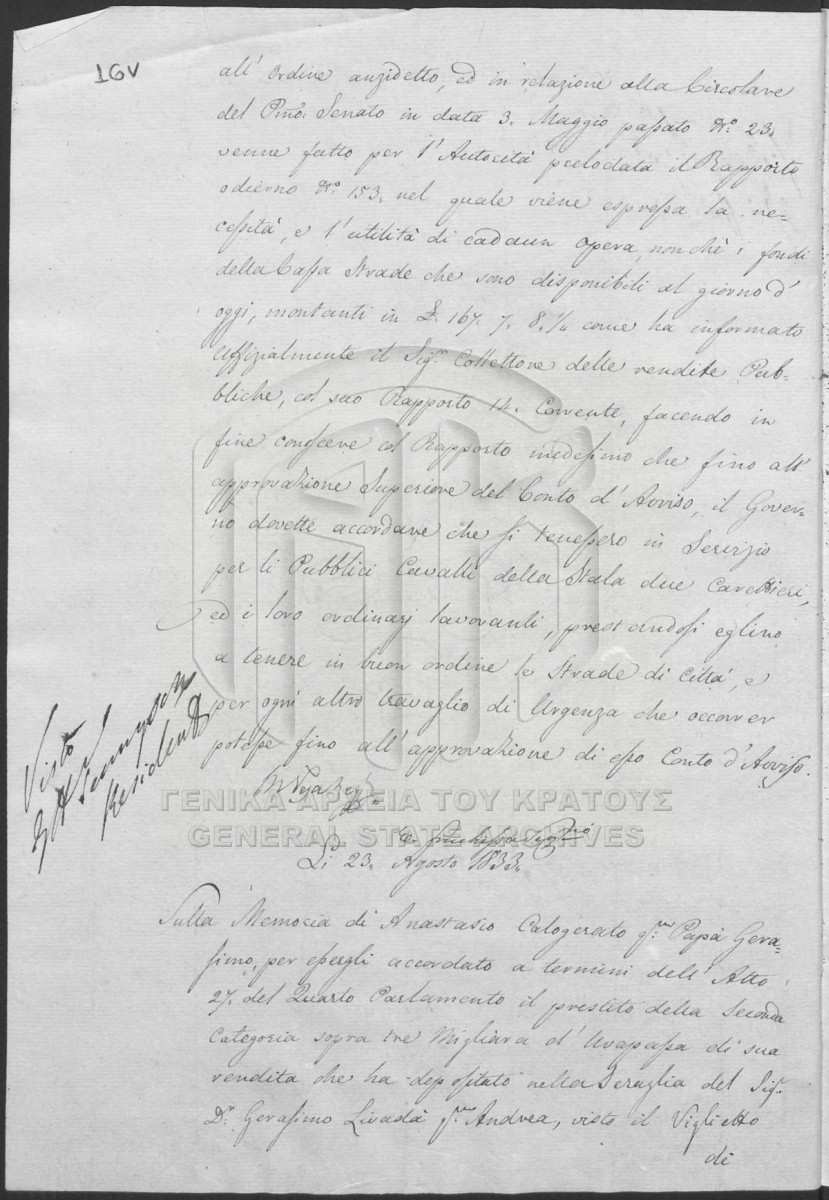 16v
all' ordine anzidetto, ed in relazione alla Circolare
del Pmo. Senato in data 3. Maggio passato No. 23.
venne fatto per l'Autorità prelodata il Rapporto
odierno No. 153. nel quale viene espressa la ne-
cessità, e l'utilità di cadaun opera, non chè i fondi
della Cassa Strade che sono disponibili al giorno d'
oggi, montanti in £. 167. 7. 8. ¼ come ha informato
uffizialmente il Sigr. Collettore delle rendite Pub-
bliche, col suo Rapporto 14. Corrente, facendo in
fine conoscere col Rapporto medesimo che fino all'
approvazione Superiore del Conto d'Avviso, il Gover-
no dovette accordare che si tenessero in Servizio
per li Pubblici Cavalli della Stala due Carettieri,
ed i loro ordinarj lavoranti, prestandosi eglino
a tenere in buon ordine le Strade di Città, e
per ogni altro travaglio di Urgenza che occorrer
potesse fino all'approvazione di esso Conto d'Avviso.
Visto
Tennyson
Residente
Li 23. Agosto 1833.
Sulla Memoria di Anastasio Calogerato qm. Papà Gera-
simo, per essergli accordato a termini dell'Atto
27. del Quarto Parlamento il prestito della Seconda
Categoria sopra tre Migliara d'Uvapassa di sua
rendita che ha depositato nella Seraglia del Sigr.
Dr. Gerasimo Livadà qm. Andrea, visto il Viglietto
di
ΓΕΝΙΚΑ ΑΡΧΕΙΑ ΤΟΥ ΚΡΑΤΟΥΣ
GENERAL STATE ARCHIVES